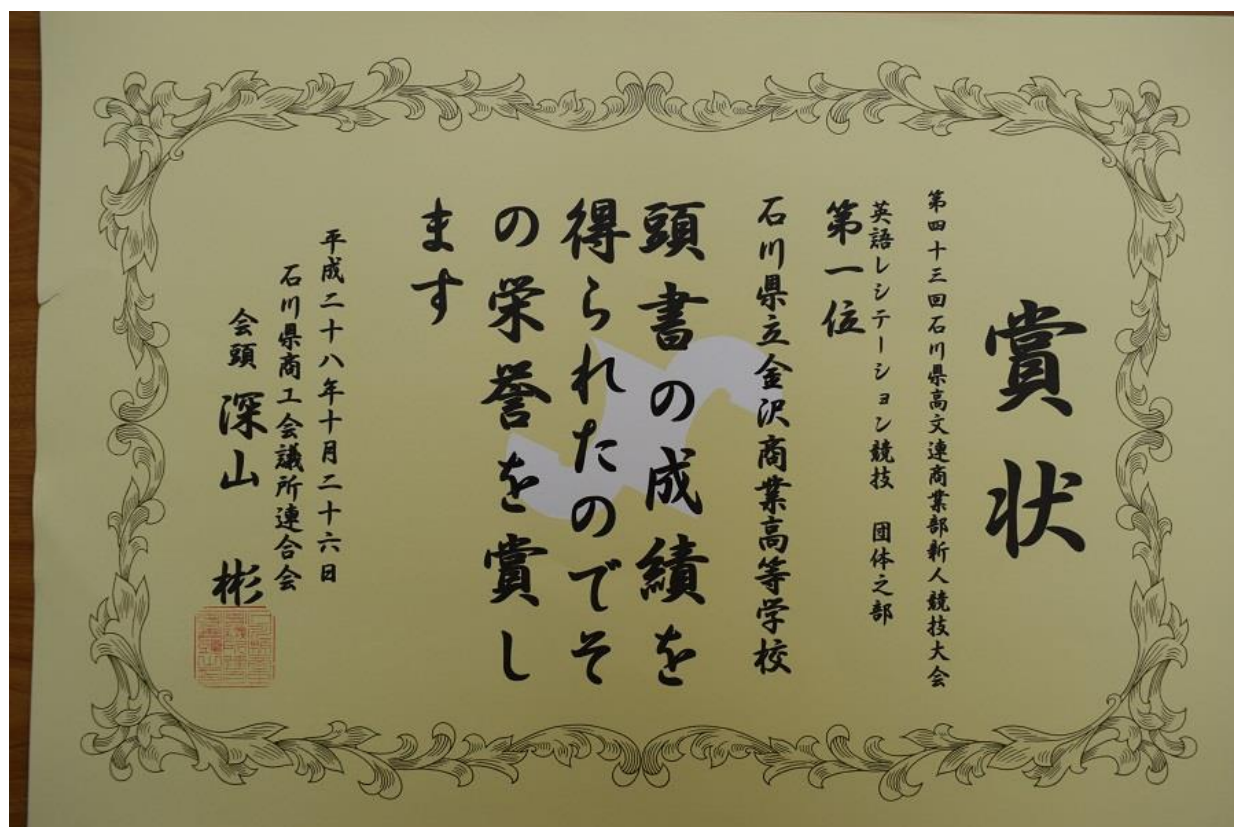 賞状
第四十三回石川県高文連商業部新人競技大会
英語レシテーション競技 団体之部
第一位
石川県立金沢商業高等学校
頭書の成績を
得られたのでそ
の栄誉を賞し
ます
平成二十八年十月二十六日
石川県商工会議所連合会
会頭 深山 彬